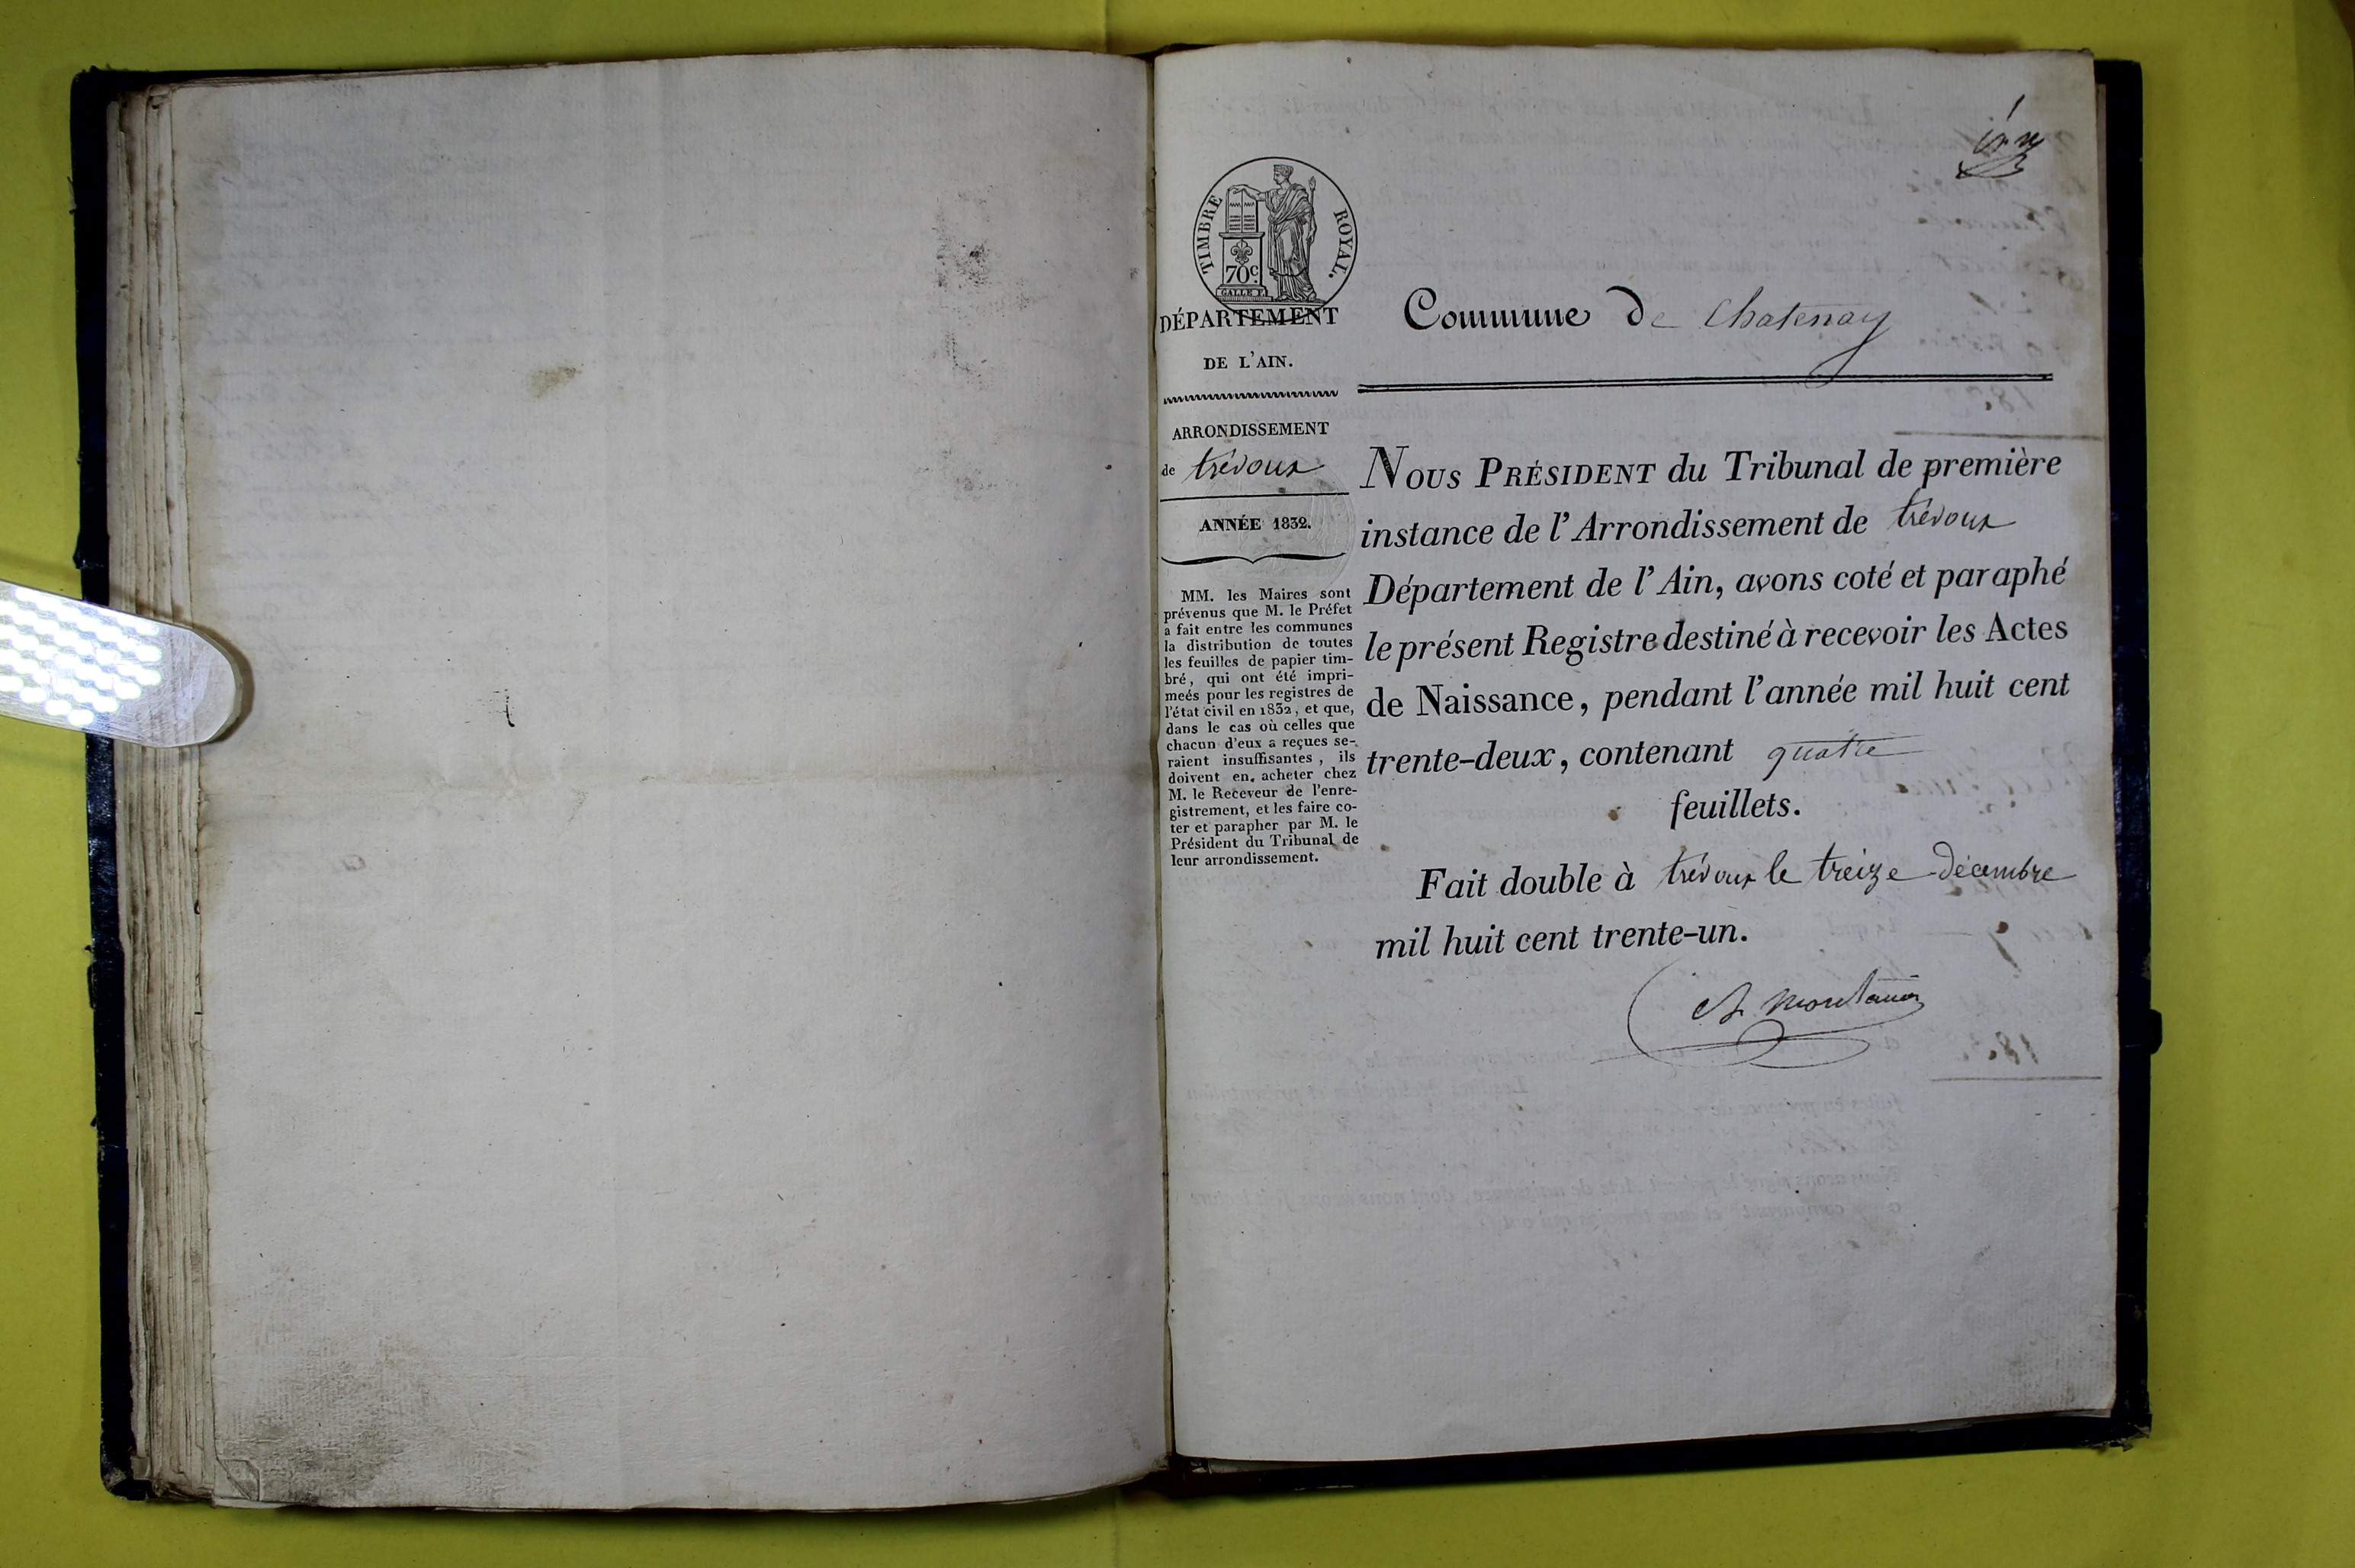 TIMBRE ROYAL.
70c.
GALLE F.
DÉPARTEMENT
DE L'AIN.
ARRONDISSEMENT
de trévoux
ANNÉE 1832.
MM. les Maires sont
prévenus que M. le Préfet
a fait entre les communes
la distribution de toutes
les feuilles de papier tim-
bré, qui ont été impri-
meés pour les registres de
l'état civil en 1832, et que,
dans le cas où celles que
chacun d'eux a reçues se-
raient insuffisantes, ils
doivent en acheter chez
M. le Receveur de l'enre-
gistrement, et les faire co-
ter et parapher par M. le
Président du Tribunal de
leur arrondissement.
Commune de Chatenay
NOUS PRÉSIDENT du Tribunal de première
instance de l'Arrondissement de trévoux
Département de l'Ain, avons coté et paraphé
le présent Registre destiné à recevoir les Actes
de Naissance, pendant l'année mil huit cent
trente-deux, contenant quatre
feuillets.
Fait double à trévoux le treize décembre
mil huit cent trente-un.